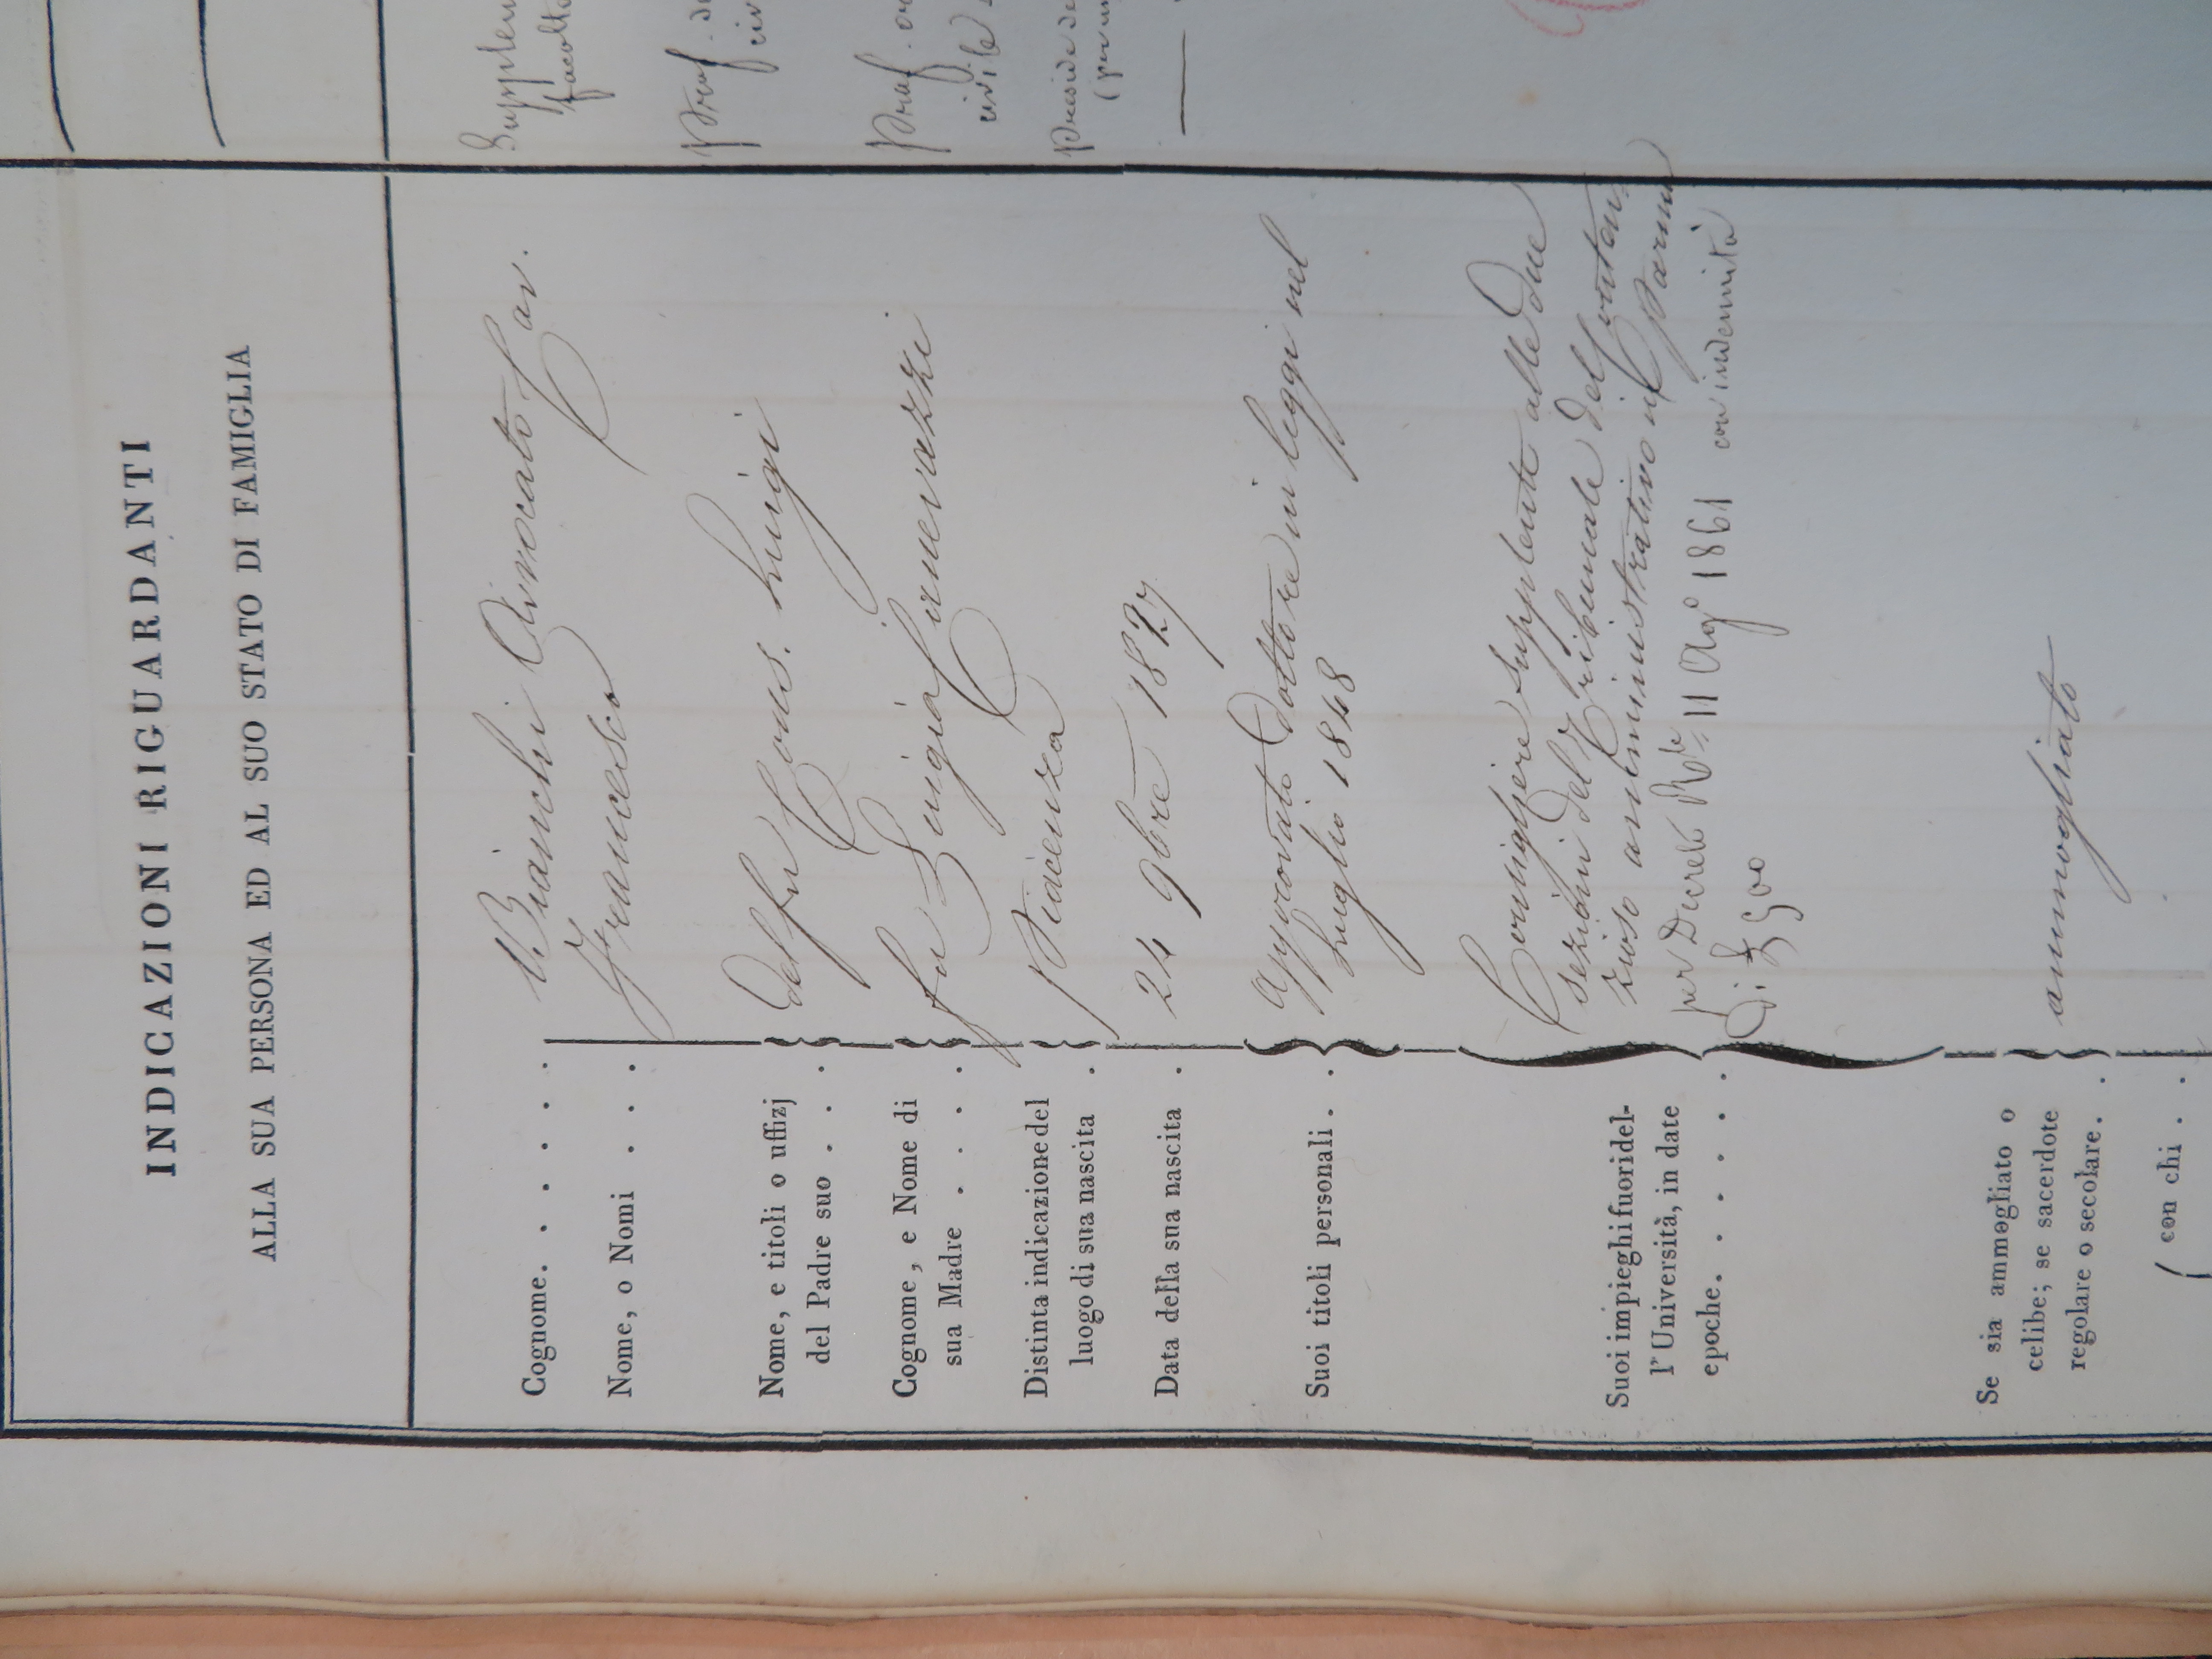 INDICAZIONI RIGUARDANTI
ALLA SUA PERSONA ED AL SUO STATO DI FAMIGLIA
Cognome. . . . . . Bianchi Avvocato Cav.
Nome, o Nomi . . . Francesco
Nome, e titoli o uffizj
del Padre suo . . .
del fu Cons. Luigi
Cognome, e Nome di
sua Madre . . . .
fu Luigia
Distinta indicazione del
luogo di sua nascita .
Piacenza
Data della sua nascita . 24 9bre 1827
Suoi titoli personali. .
Approvato Dottore in leggi nel
Luglio 1848
Suoi impieghi fuori del-
l'Università, in date
epoche. . . . . .
Consigliere supplente alle due
sezioni del Tribunale del Conten
zioso amministrativo in Parma
per Decreto 11 Ago 1861 con indennità
di £ 900
Se sia ammogliato o
celibe; se sacerdote
regolare o secolare. .
ammogliato
( con chi . .
Supplen
facoltà
Prof.
civ
Prof. or
civile
Preside de
(per un